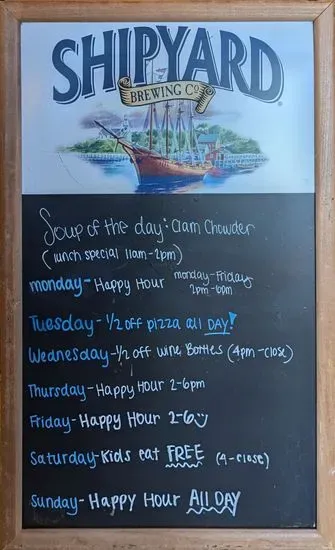 SHIPYARD
BREWING CO.
Soup of the day: Clam Chowder
(lunch special 11am-2pm)
monday- Happy Hour monday-Friday
2pm-6pm
Tuesday- 1/2 off pizza all DAY!
Wednesday-1/2 off wine Bottles (4pm-close)
Thursday-Happy Hour 2-6pm
Friday- Happy Hour 2-6
Saturday-Kids eat FREE (4-close)
Sunday- Happy Hour All DAY